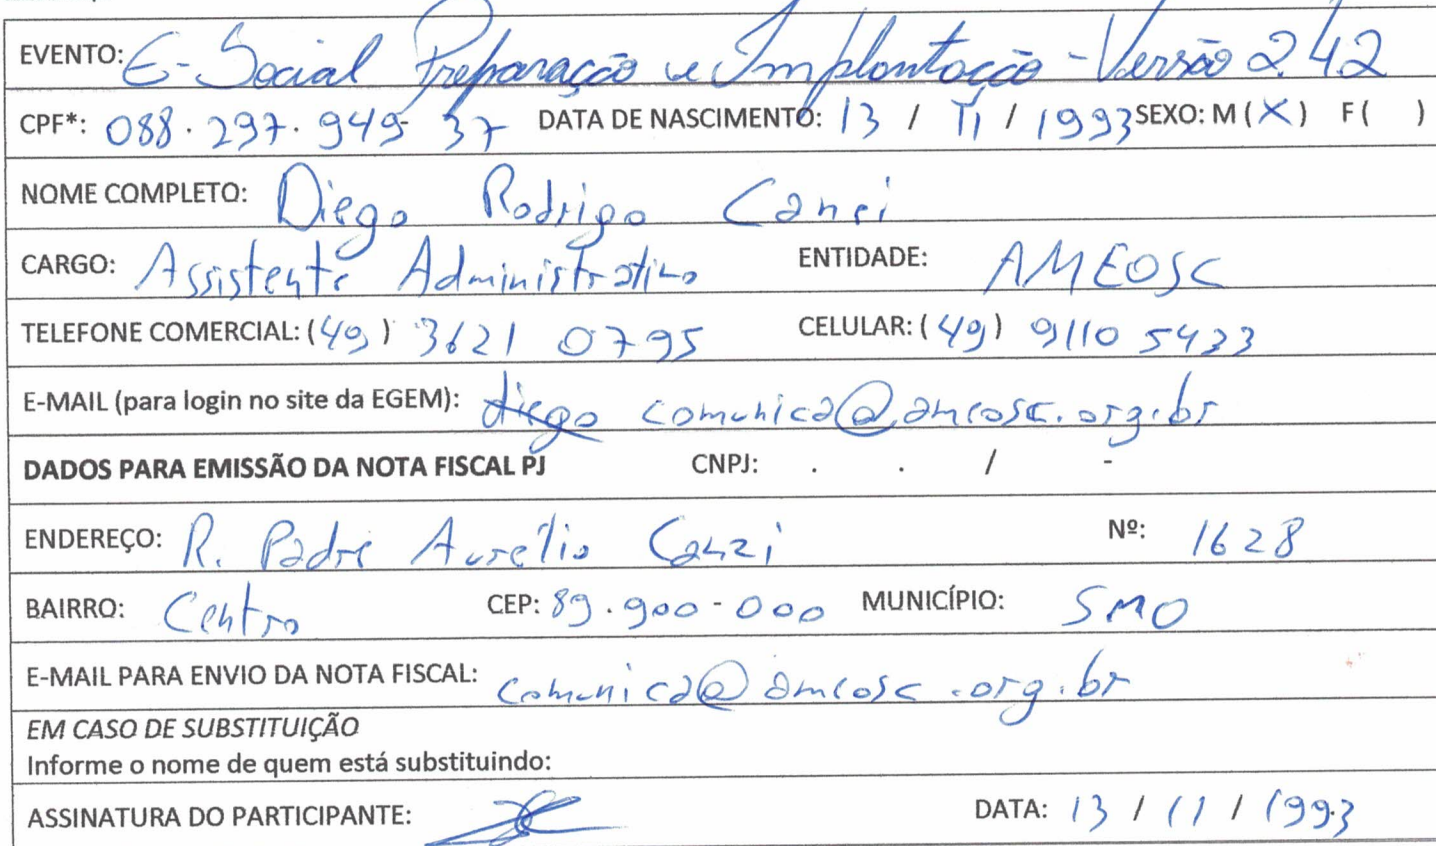 EVENTO: E-Social Preparação e Implantação - Versão 2.4.2
CPF*: 088.297.949-37 DATA DE NASCIMENTO: 13 / 11 / 1993 SEXO: M (X) F ( )
NOME COMPLETO: Diego Rodrigo Canei
CARGO: Assistente Administrativo ENTIDADE: AMEOSC
TELEFONE COMERCIAL: (49) 3621 0795 CELULAR: (49) 9110 5433
E-MAIL (para login no site da EGEM): diego comunica@ameosc.org.br
DADOS PARA EMISSÃO DA NOTA FISCAL PJ CNPJ: . . / -
ENDEREÇO: R. Padre Aurélio Canzi Nº: 1628
BAIRRO: Centro CEP: 89.900-000 MUNICÍPIO: SMO
E-MAIL PARA ENVIO DA NOTA FISCAL: comunica@ameosc.org.br
EM CASO DE SUBSTITUIÇÃO
Informe o nome de quem está substituindo:
ASSINATURA DO PARTICIPANTE: DATA: 13 / 11 / 1993